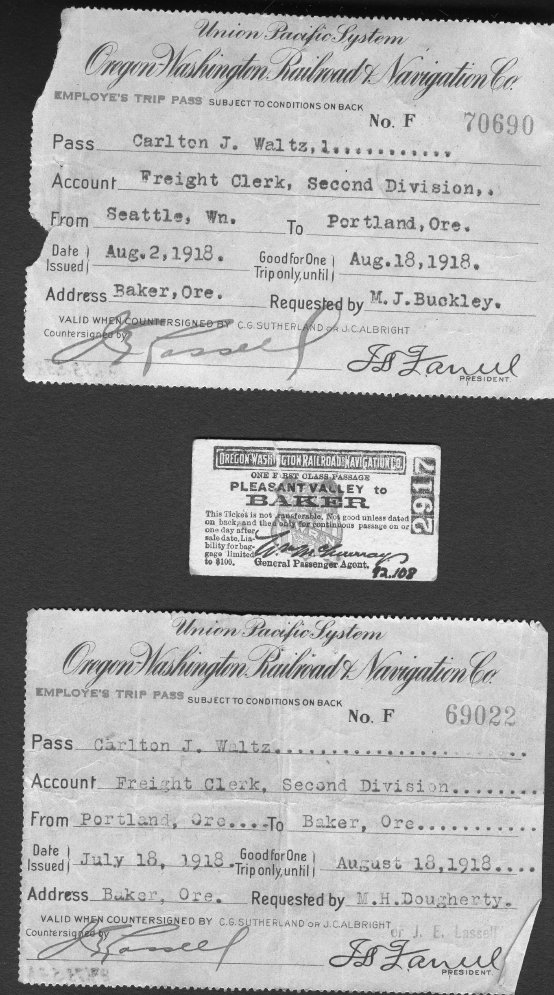 Union Pacific System
Oregon-Washington Railroad & Navigation Co.
EMPLOYE'S TRIP PASS SUBJECT TO CONDITIONS ON BACK
No. F 70690
Pass Carlton J. Waltz, 1............
Account Freight Clerk, Second Division,.
From Seattle, Wn. To Portland, Ore.
Date Issued Aug. 2, 1918. Good for One Trip only, until Aug. 18, 1918.
Address Baker, Ore. Requested by M. J. Buckley.
VALID WHEN COUNTERSIGNED BY C.G. SUTHERLAND OR J.C. ALBRIGHT
Countersigned by
PRESIDENT
OREGON-WASHINGTON RAILROAD & NAVIGATION CO.
ONE FIRST CLASS PASSAGE
PLEASANT VALLEY to
BAKER
2917
This Ticket is not transferable. Not good unless dated
on back and then only for continuous passage on or
one day after
sale date. Lia-
bility for bag-
gage limited
to $100.
Wm McMurray
General Passenger Agent.
92.108
Union Pacific System
Oregon-Washington Railroad & Navigation Co.
EMPLOYE'S TRIP PASS SUBJECT TO CONDITIONS ON BACK
No. F 69022
Pass Carlton J. Waltz..........................
Account Freight Clerk, Second Division........
From Portland, Ore.... To Baker, Ore...........
Date Issued July 18, 1918. Good for One Trip only, until August 18, 1918....
Address Baker, Ore. Requested by M. H. Dougherty.
VALID WHEN COUNTERSIGNED BY C.G. SUTHERLAND OR J.C. ALBRIGHT
or J. E. Lassell
Countersigned by
PRESIDENT.